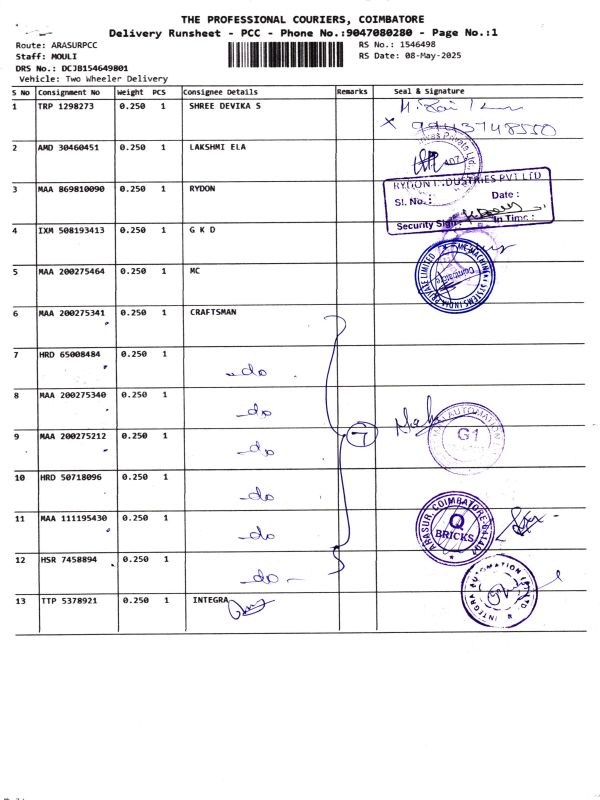 THE PROFESSIONAL COURIERS, COIMBATORE
Delivery Runsheet - PCC - Phone No.:9047080280 - Page No.:1
Route: ARASURPCC
RS No.: 1546498
Staff: MOULI
RS Date: 08-May-2025
DRS No.: DCJB154649801
Vehicle: Two Wheeler Delivery
S No Consignment No Weight PCS Consignee Details Remarks Seal & Signature
1 TRP 1298273 0.250 1 SHREE DEVIKA S
x 9943748550
2 AMD 30460451 0.250 1 LAKSHMI ELA
3 MAA 869810090 0.250 1 RYDON
RYDON INDUSTRIES PVT LTD
Sl. No.: Date :
Security Sign: In Time :
4 IXM 508193413 0.250 1 G K D
5 MAA 200275464 0.250 1 MC
6 MAA 200275341 0.250 1 CRAFTSMAN
7 HRD 65008484 0.250 1 -do
8 MAA 200275340 0.250 1 -do
9 MAA 200275212 0.250 1 -do
7
G1
10 HRD 50718096 0.250 1 -do
11 MAA 111195430 0.250 1 -do
ARASUR, COIMBATORE
Q
BRICKS
12 HSR 7458894 0.250 1 -do-
13 TTP 5378921 0.250 1 INTEGRA
INTEGRA AUTOMATION (P) LTD